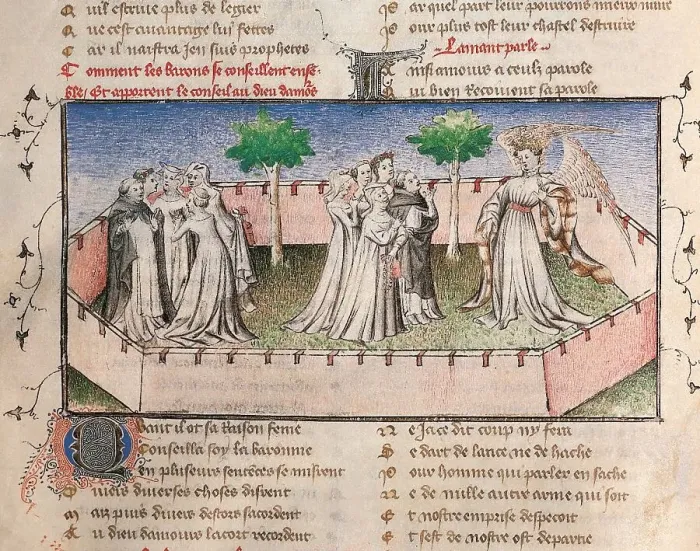 uil estruie plus de legier
Q ne cest auantage lui fettes
C ar il naistra jen suis prophetes
C omment les barons se conseillent ense
ble / Et apportent le conseil au dieu damors
ar quel part leur pourrons mieux nuire
P our plus tost leur chastel destruire
Lamant parle
A insi amours a ceulz parole
Q ui bien recoiuent sa parole
Q uant il ot sa raison fenie
C onseilla soy la baronnie
E n pluseurs sentences se mistrent
D iuers diuerses choses distrent
M aiz puis diuers descors sacordent
A u dieu damours lacort recordent
N e ja ce dit coup ny fera
S e dart de lance ne de hache
P our homme qui parler en sache
N e de mille autre arme qui soit
E t nostre emprise despecoit
E t sest de nostre ost departie